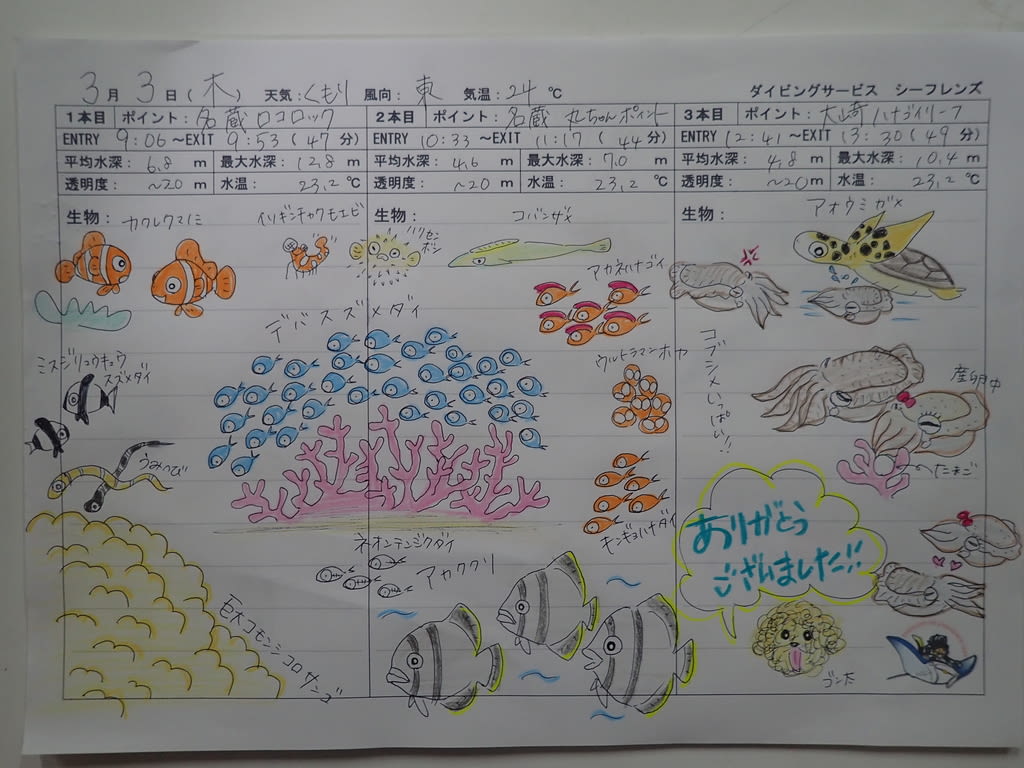 3月 3日(木) 天気:くもり 風向:東 気温:24℃ ダイビングサービス シーフレンズ
1本目 ポイント:名蔵ロコロック
ENTRY 9:06 ~EXIT 9:53 (47分)
平均水深: 6.8 m 最大水深: 12.8 m
透明度: ~20 m 水温: 23.2 ℃
2本目 ポイント:名蔵 丸ちゃんポイント
ENTRY 10:33 ~EXIT 11:17 (44分)
平均水深: 4.6 m 最大水深: 7.0 m
透明度: ~20 m 水温: 23.2 ℃
3本目 ポイント:大崎ハナゴイリーフ
ENTRY 12:41 ~EXIT 13:30 (49分)
平均水深: 4.8 m 最大水深: 10.4 m
透明度: ~20m 水温: 23.2 ℃
生物:
カクレクマノミ
イソギンチャクモエビ
デバスズメダイ
ミスジリュウキュウ
スズメダイ
うみへび
巨大コモンシコロサンゴ
生物:
ハリセン
ボン
コバンザメ
アカネハナゴイ
ウルトラマンホヤ
キンギョハナダイ
ネオンテンジクダイ
アカククリ
生物:
アオウミガメ
コブシメいっぱい!!
産卵中
たまご
ありがとう
ございました!!
ゴン太